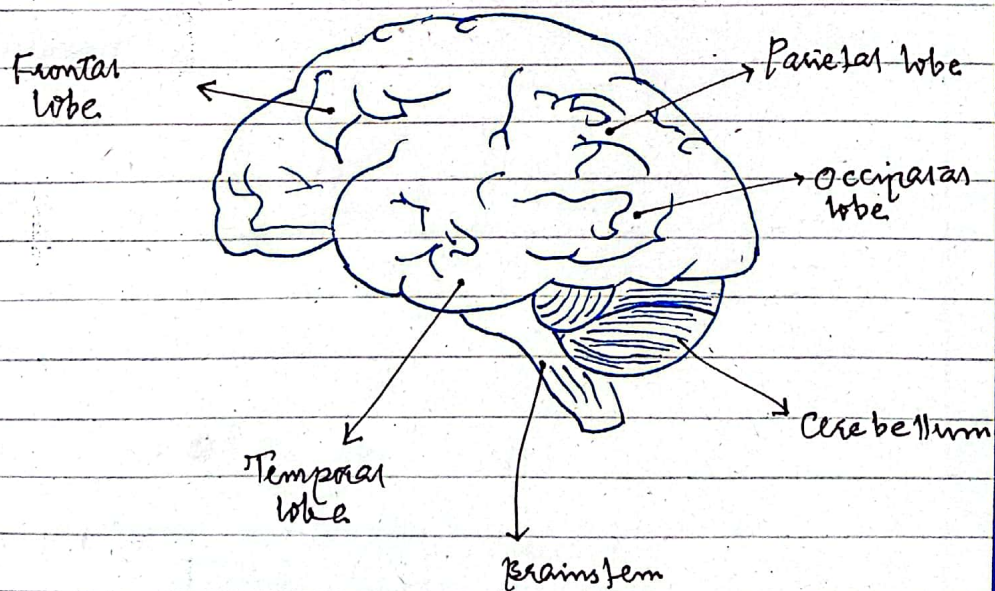 Frontal
lobe
Parietal lobe
Occipatal
lobe
Cerebellum
Temporal
lobe
Brainstem